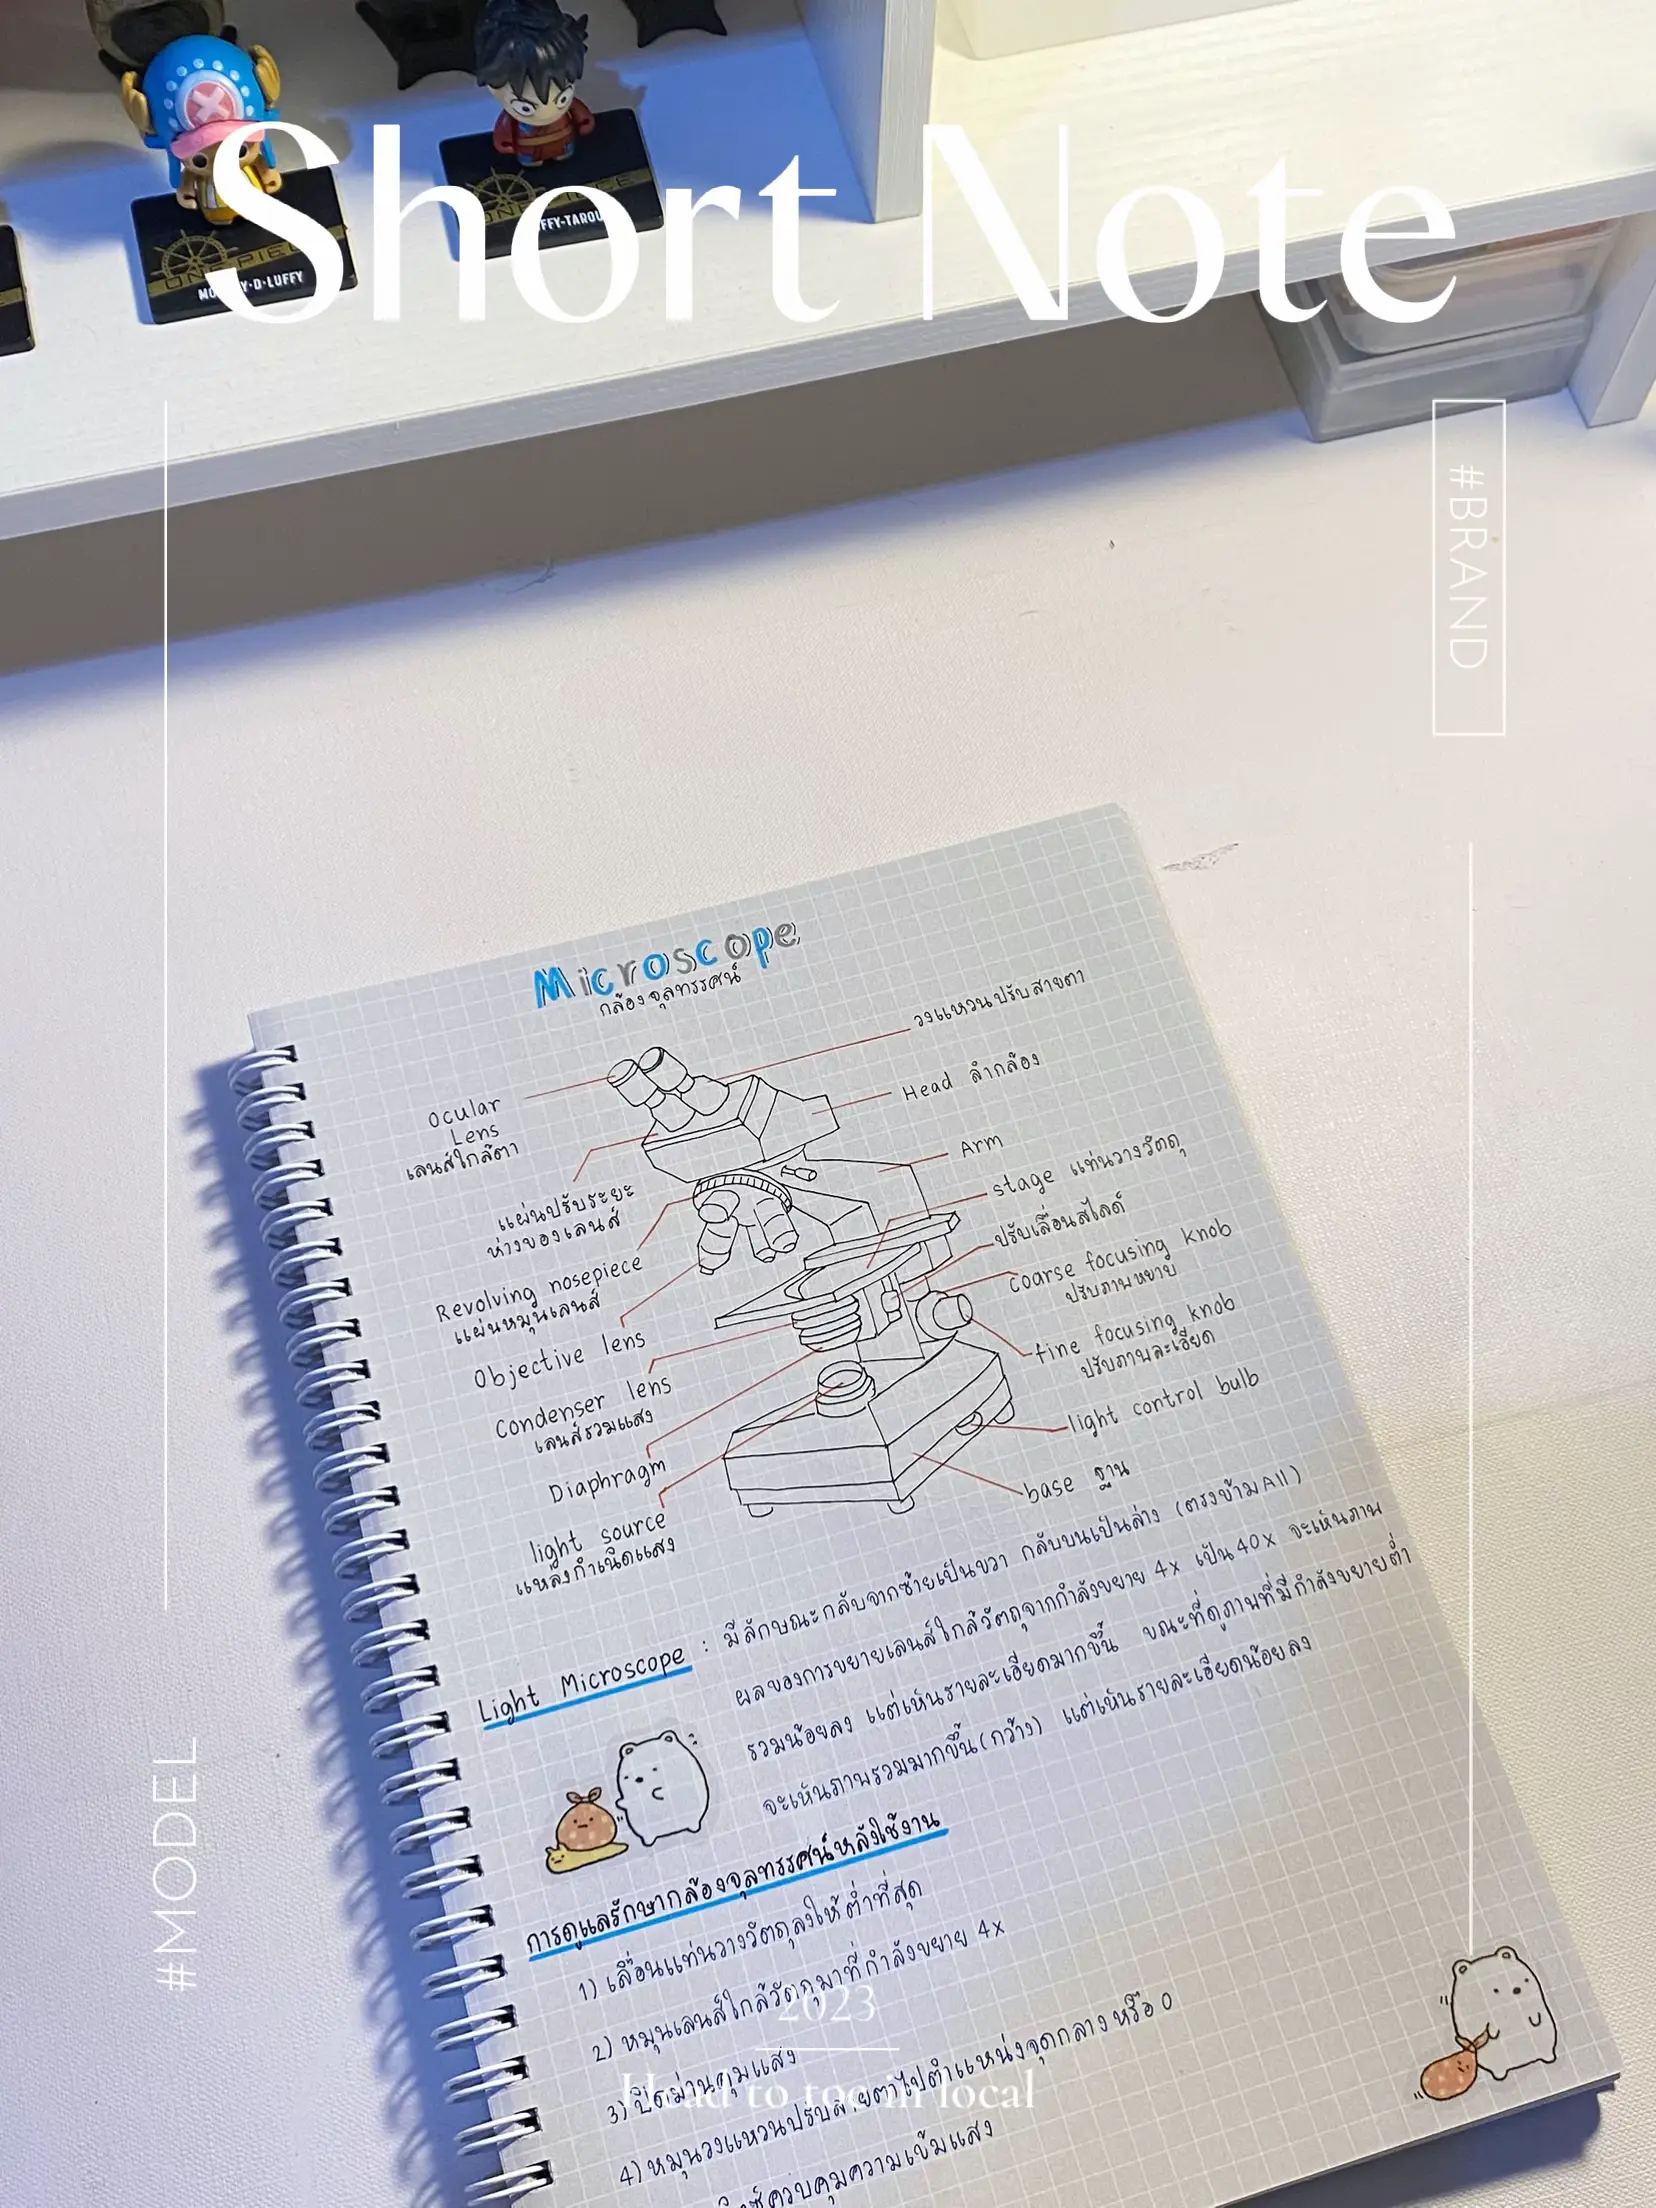 Short Note
ONE PIECE
D·LUFFY
FFY-TAROU
#BRAND
#MODEL
Microscope
กล้องจุลทรรศน์
วงแหวนปรับสายตา
Head ลำกล้อง
Ocular
Lens
เลนส์ใกล้ตา
Arm
stage แท่นวางวัตถุ
แผ่นปรับระยะ
ห่างของเลนส์
ปรับเลื่อนสไลด์
Revolving nosepiece
แผ่นหมุนเลนส์
coarse focusing knob
ปรับภาพหยาบ
Objective lens
fine focusing knob
ปรับภาพละเอียด
Condenser lens
เลนส์รวมแสง
light control bulb
Diaphragm
base ฐาน
light source
แหล่งกำเนิดแสง
Light Microscope : มีลักษณะกลับจากซ้ายเป็นขวา กลับบนเป็นล่าง (ตรงข้าม All)
ผลของการขยายเลนส์ใกล้วัตถุจากกำลังขยาย 4x เป็น 40x จะเห็นภาพ
รวมน้อยลง แต่เห็นรายละเอียดมากขึ้น ขณะที่ดูภาพที่มีกำลังขยายต่ำ
จะเห็นภาพรวมมากขึ้น (กว้าง) แต่เห็นรายละเอียดน้อยลง
การดูแลรักษากล้องจุลทรรศน์หลังใช้งาน
1) เลื่อนแท่นวางวัตถุลงให้ต่ำที่สุด
2) หมุนเลนส์ใกล้วัตถุมาที่กำลังขยาย 4x
3) ปิดม่านคุมแสง
4) หมุนวงแหวนปรับสายตาไปตำแหน่งจุดกลางหรือ 0
ควบคุมความเข้มแสง
2023
Head to toe in local